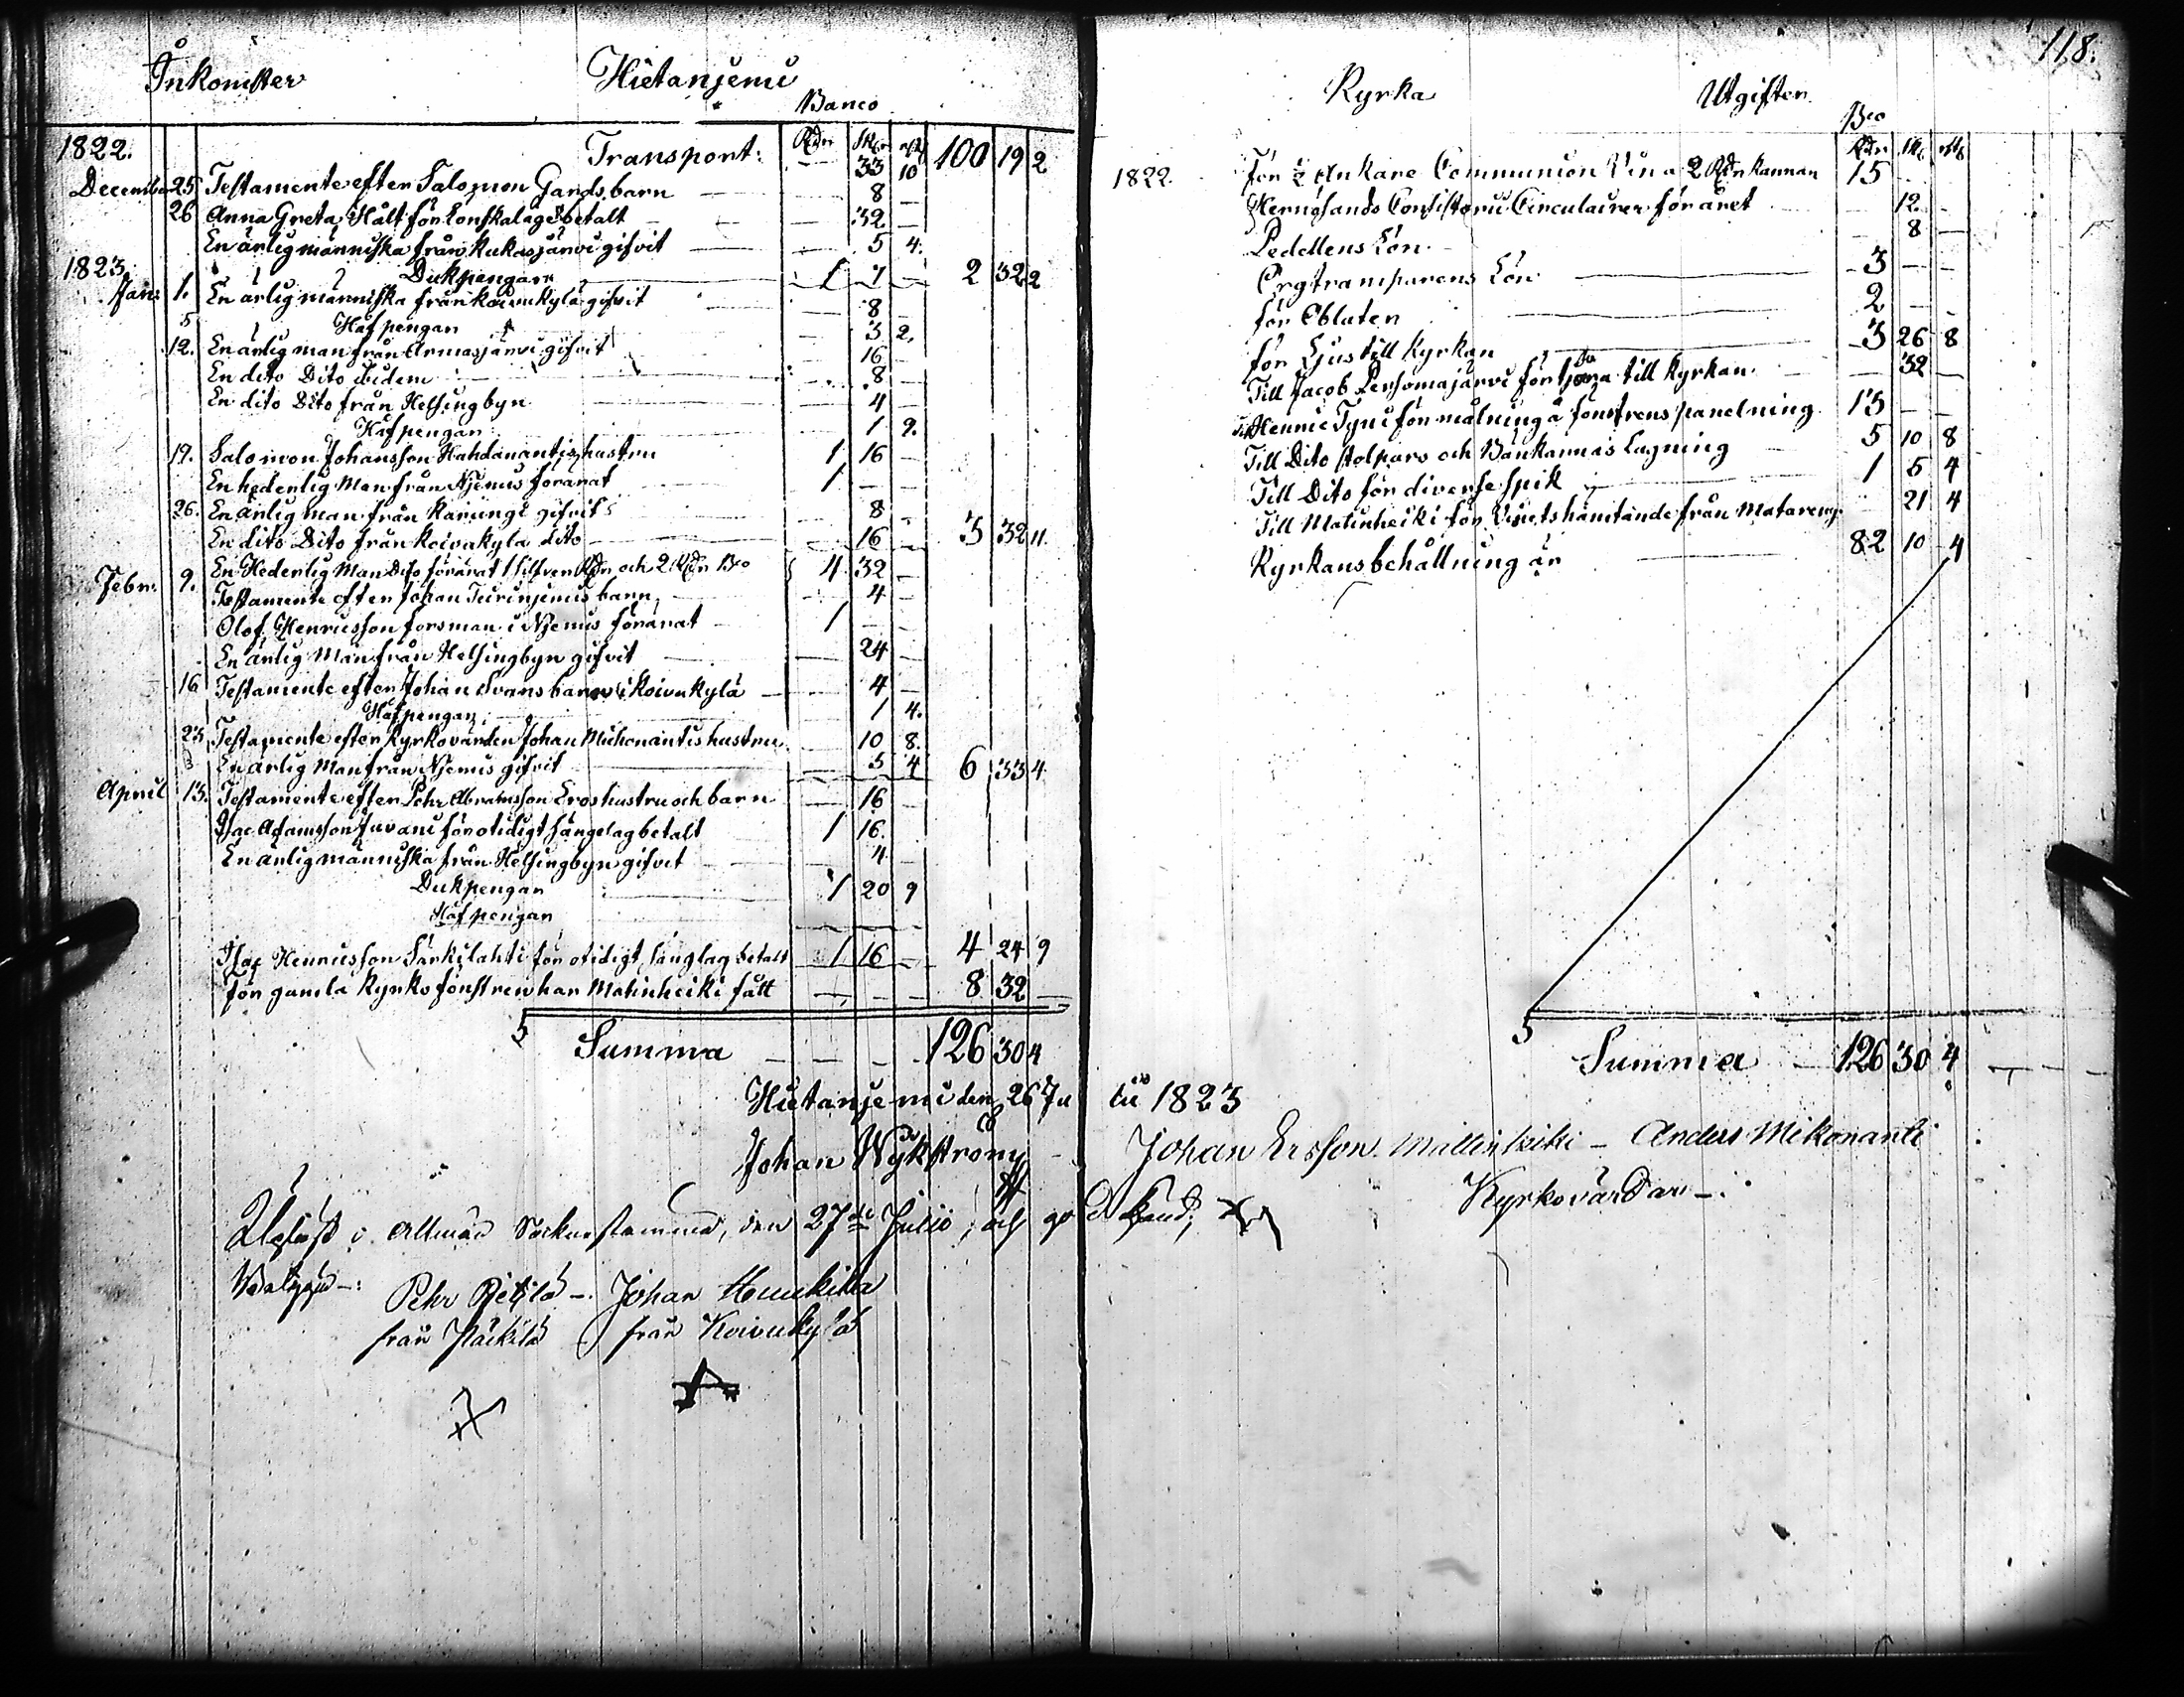 Inkomster Hietaniemi
Banco
1822. Transport: Rdr Sk. rst 33 10 100 19 2
December 25 Testamente efter Salomon Gards barn — 8 —
26 Anna Greta Hält för Lonskalage betalt — 32 —
En ärlig människa från Kukasjärvi gifvit — 5 4.
1823. Dukpengar 1 7 — 2 32 2
Jan: 1. En ärlig människa från Koivukylä gifvit — 8 —
5 Håfpengar — 3 2.
12. En ärlig man från Armasjärvi gifvit — 16 —
En dito Dito ibidem — 8 —
En dito Dito från Helsingbyn — 4 —
Håfpengar 1 9.
19. Salomon Johansson Hahdanantis hustru 1 16 —
En hederlig Man från Njemis förärat 1 — —
26. En ärlig man från Karungi gifvit — 8 —
En dito Dito från Koivukylä dito — 16 — 3 32 11.
En Hederlig Man Dito förärat 1 Silfver Rdr och 2 Rdr Bco 4 32 —
Febr. 9. Testamente efter Johan Turinjemis barn — 4 —
Olof Henricsson Forsman i Njemis förärat 1 — —
En ärlig Man från Helsingbyn gifvit — 24 —
16 Testamente efter Johan Svans barn i Koivukylä — 4 —
Håfpengar — 1 4.
23. Testamente efter Kyrkovärden Johan Mickonantis hustru 10 8.
En ärlig Man från Njemis gifvit — 5 4 6 33 4
April 13. Testamente efter Pehr Abrahmsson Eros hustru och barn — 16 —
Isac Adamsson Juvani för otidigt sängelag betalt 1 16.
En ärlig människa från Helsingbyn gifvit — 4 —
Dukpengar 1 20 9
Håfpengar
Isac Henricsson Särkilahti för otidigt sänglag betalt 1 16 — 4 24 9
För gamla Kyrko fönstren har Matinheiki fått — — — 8 32 —
Summa — — — 126 30 4
118.
Kyrka Utgifter
Bco
1822. Rdr Sk. rst
För ½ Ankare Communion Vin a 2 Rdr Kannan 15
Hernösands Consistorii Circulairer för året — 12 —
Pedellens Lön — 8 —
Orgtramparens Lön — 3 — —
för Oblater — 2 — —
för Ljus till Kyrkan — 3 26 8
Till Jacob Persomajärvi för tjära till Kyrkan — 32 —
Till Hennic Tyni för målning å fönstrens panelning 13 — —
Till Dito stolpars och Bänkarnas Lagning 5 10 8
Till Dito för diverse spik 1 5 4
Till Matinheiki för Vinets hämtande från Matarengi 21 4
Kyrkans behållning är 82 10 4
Summa — 126 30 4
Hietanjemi den 26 Julii 1823
Johan Wykström Johan Ersson Mattinheiki — Anders Mikonanti
Kyrkovärdar —.
Upläst i Allmän Sockenstämma, den 27de Julii, och godkänd,
Pehr Pietilä —. Johan Haukika
från Päckilä från Koivukylä